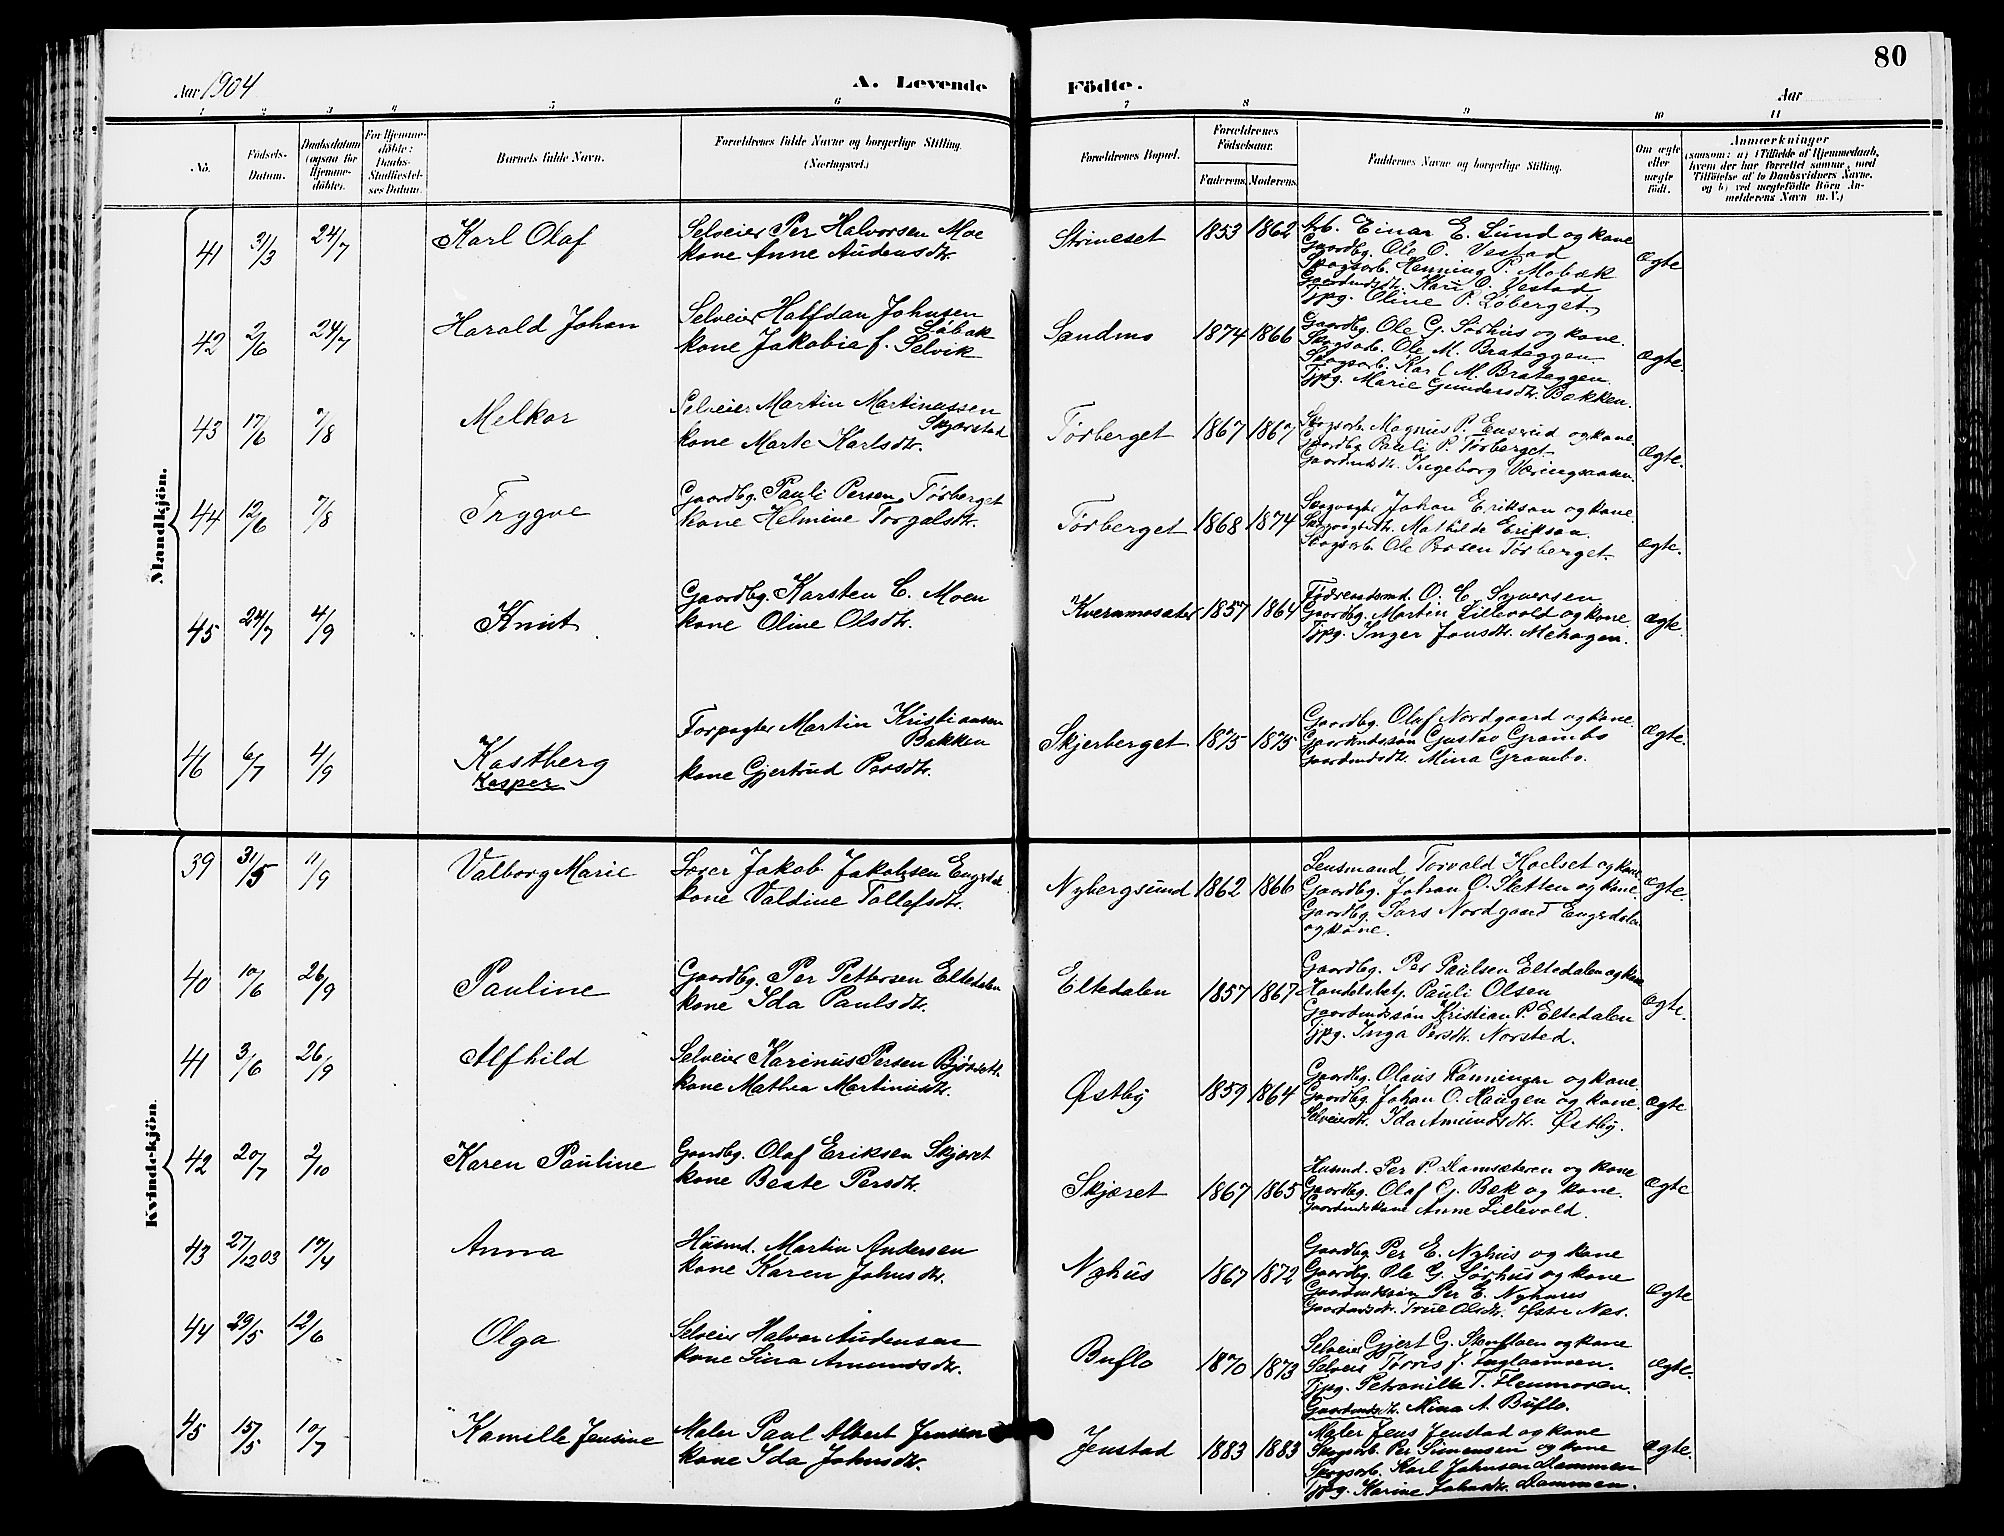 80
Aar 1904
A. Levende Födte.
Aar
1 2 3 4 5 6 7 8 9 10 11
No.
Födsels-Datum.
Daabsdatum (ogsaa for Hjemme-döbte).
For Hjemme-döbte: Daabs-Stadfæstel-ses Datum.
Barnets fulde Navn.
Forældrenes fulde Navne og borgerlige Stilling. (Næringsvei.)
Forældrenes Bopæl.
Forældrenes Födselsaar.
Faderens. Moderens.
Faddernes Navne og borgerlige Stilling.
Om ægte eller uægte födt.
Anmærkninger
(saasom: a) i Tilfælde af Hjemmedaab,
hvem der har forrettet samme, med
Tilföielse af to Daabsvidners Navne,
og b) ved uægtefödte Börn An-
melderens Navn m. V.)
Mandkjön.
41 31/3 24/7 Karl Olaf
Selveier Per Halvorsen Moe
kone Anne Audensdtr.
Strineset 1853 1862
Arb. Einar E. Lund og kone
Gaardbg. Ole O. Vestad
Skogsarb. Henning P. Mobæk
Gaardmdsdtr. Kari O. Vestad
Tjpg. Oline P. Løberget.
Ægte
42 2/6 24/7 Harald Johan
Selveier Halfdan Johnsen
Løbak
kone Jakobia f. Selvik
Sandmo 1874 1866
Gaardbg. Ole G. Sørhus og kone.
Skogsarb. Ole M. Brateggen.
Skogsarb. Karl M. Brateggen.
Tjpg. Marie Gundersdtr. Bakken.
Ægte.
43 17/6 7/8 Melkor
Selveier Martin Martinussen
Skjærstad
kone Marte Karlsdtr.
Tørberget 1867 1867
Skogsarb. Magnus P. Ensrud og kone.
Gaardbg. Pauli P. Tørberget
Gaardmdsdtr. Ingeborg
Ægte.
44 12/6 7/8 Tryggve
Gaardbg. Pauli Persen Tørberget
kone Helmine Torgalsdtr.
Tørberget 1868 1874
Skogvogter Johan Erikson og kone.
Skogvogterdtr. Mathilde Erikson.
Skogsarb. Ole Persen Tørberget.
Ægte.
45 24/7 4/9 Knut
Gaardbg. Karsten C. Moen
kone Oline Olsdtr.
Kvernmosæter 1857 1864
Føderaadsmd. O. C. Syversen
Gaardbg. Martin Lillevold og kone.
Tjpg. Inger Jonsdtr. Mehagen.
Ægte.
46 6/7 4/9 Kastberg
Kasper
Forpagter Martin Kristiansen
Bakken
kone Gjertrud Persdtr.
Skjerberget 1875 1875
Gaardbg. Olaf Nordgaard og kone.
Gaardmdssøn Gustav Grambo
Gaardmdsdtr. Mina Grambo.
Ægte.
Kvindekjön.
39 31/5 11/9 Valborg Marie
Jakob Jakobsen
kone Valdine Tollefsdtr.
Nybergsund 1862 1866
Lensmand Torvald Hoelset og kone
Gaardbg. Johan O. Sletten og kone.
Gaardbg. Lars Nordgaard Engerdalen
og kone.
Ægte.
40 10/6 26/9 Pauline
Gaardbg. Per Pettersen Eltedalen
kone Ida Paulsdtr.
Eltedalen 1857 1867
Gaardbg. Per Paulsen Eltedalen og kone
Handelsbetj. Pauli Olsen
Gaardmdssøn Kristian P. Eltedalen
Tjpg. Inga Persdtr. Norsted.
Ægte.
41 3/6 26/9 Alfhild
Selveier Karinus Persen
kone Mathea Martinusdtr.
Østby 1859 1864
Gaardbg. Olaus Rønningen og kone.
Gaardbg. Johan O. Haugen og kone.
Selveierdtr. Ida Amundsdtr. Østby.
Ægte
42 20/7 2/10 Karen Pauline
Gaardbg. Olaf Eriksen Skjæret
kone Beate Persdtr.
Skjæret 1867 1865
Husmd. Per P. Damsæteren og kone
Gaardbg. Olaf G. Bæk og kone.
Gaardmdskone Anne Lillevold.
Ægte
43 27/12 03 17/4 Anna
Husmd. Martin Andersen
kone Karen Johnsdtr.
Nyhus 1867 1872
Gaardbg. Per E. Nyhus og kone
Gaardbg. Ole G. Sørhus og kone
Gaardmdssøn Per E. Nyhus
Gaardmdsdtr. Olsdtr. Østre Næs.
Ægte
44 29/5 12/6 Olga
Selveier Halvor Audensen
kone Lina Amundsdtr.
Buflo 1870 1873
Selveier Gjert G. og kone
Selveier Torris J.
Tjpg. Petronille T. Flenmoren.
Gaardmdsdtr. Mina A. Buflo.
Ægte.
45 15/5 10/7 Kamilla Jensine
Maler Paul Albert Jensen
kone Ida Johnsdtr.
Jenstad 1883 1883
Maler Jens Jenstad og kone
Skogsarb. Per Simensen og kone
Skogsarb. Karl Johnsen Dammen
Tjpg. Karine Johnsdtr. Dammen.
Ægte.